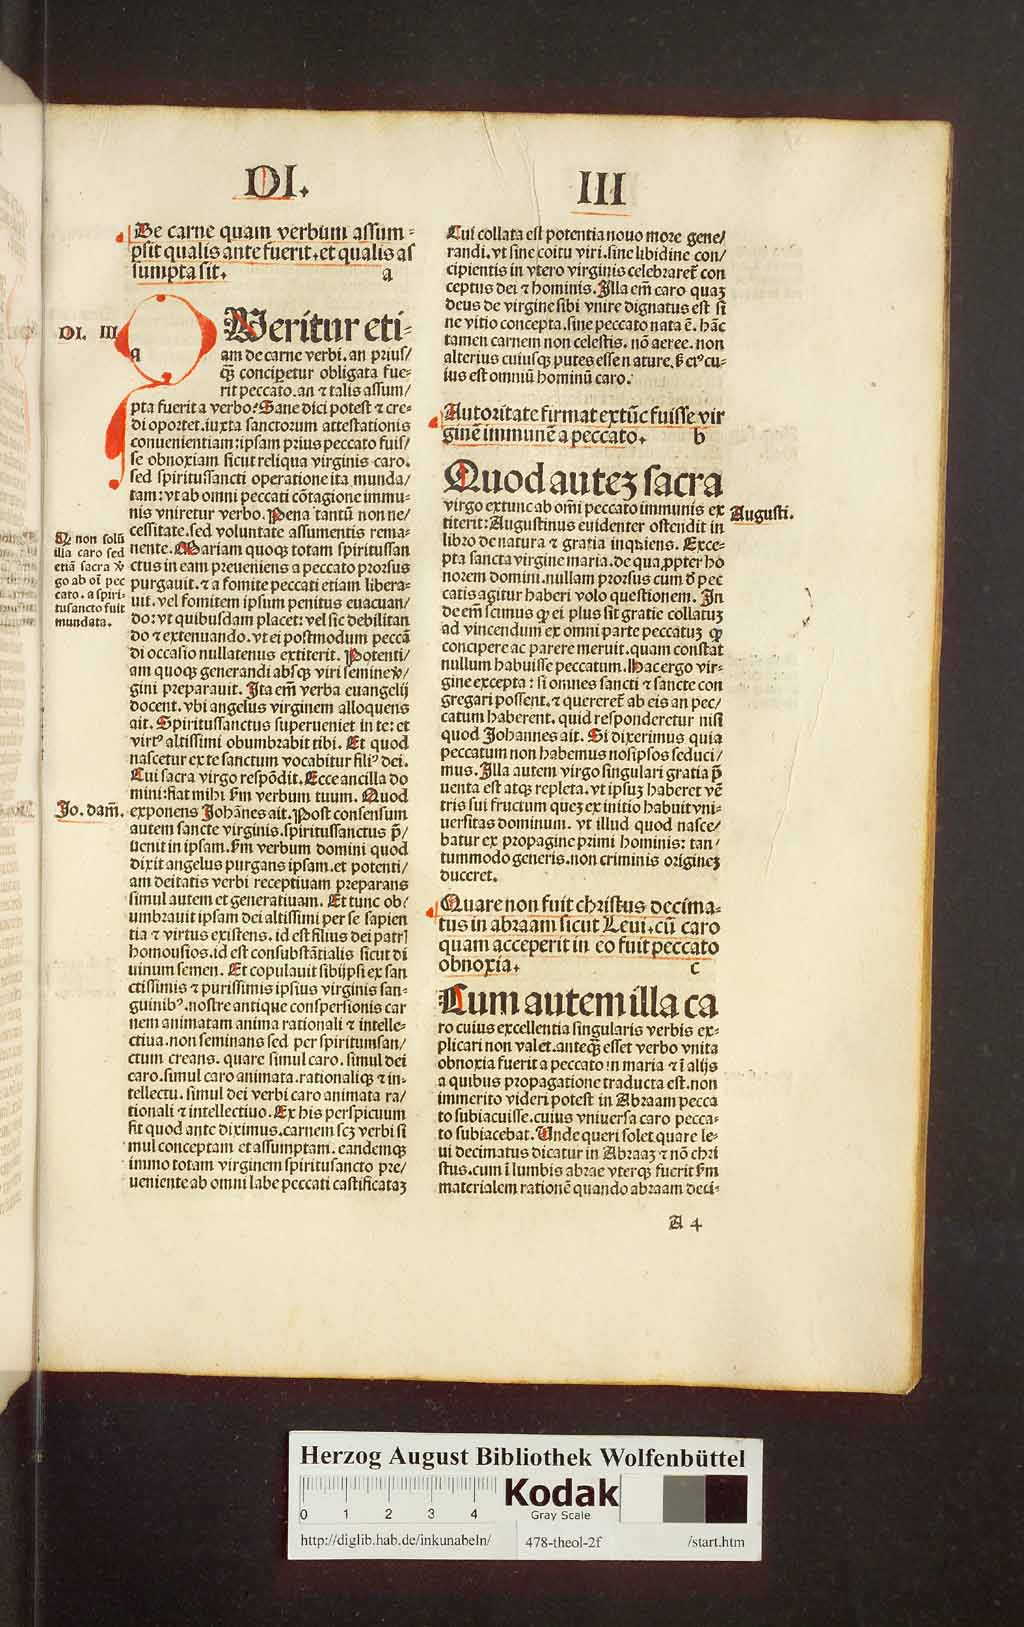 DI.
III
De carne quam verbum assum-
psit qualis ante fuerit.et qualis as
sumpta sit. a
DI. III
q
Ueritur eti-
am de carne verbi.an prius/
qȝ conciperetur obligata fue-
rit peccato.an ⁊ talis assum/
pta fuerit a verbo? Sane dici potest ⁊ cre-
di oportet.iuxta sanctorum attestationis
conuenientiam:ipsam prius peccato fuis/
se obnoxiam sicut reliqua virginis caro.
sed spiritussancti operatione ita munda/
tam:vt ab omni peccati cōtagione immu-
nis vniretur verbo.Pena tantū non ne/
cessitate.sed voluntate assumentis rema-
nente.Mariam quoqȝ totam spiritussan
ctus in eam preueniens a peccato prorsus
purgauit.⁊ a fomite peccati etiam libera-
uit.vel fomitem ipsum penitus euacuan/
do:vt quibusdam placet:vel sic debilitan
do ⁊ extenuando.vt ei postmodum peccā
di occasio nullatenus extiterit. Potenti/
am quoqȝ generandi absqȝ viri semine v̓/
gini preparauit. Ita em̄ verba euangelij
docent.vbi angelus virginem alloquens
ait. Spiritussanctus superueniet in te: et
virtꝰ altissimi obumbrabit tibi. Et quod
nascetur ex te sanctum vocabitur filiꝰ dei.
Cui sacra virgo respōdit.Ecce ancilla do
mini:fiat mihi s̄m verbum tuum. Quod
exponens Johānes ait.Post consensum
autem sancte virginis.spiritussanctus p̄/
uenit in ipsam.s̄m verbum domini quod
dixit angelus purgans ipsam.et potenti/
am deitatis verbi receptiuam preparans
simul autem et generatiuam. Et tunc ob/
umbrauit ipsam dei altissimi per se sapien
tia ⁊ virtus existens. id est filius dei patri
homousios.id est consubstātialis sicut di
uinum semen. Et copulauit sibiipsi ex san
ctissimis ⁊ purissimis ipsius virginis san-
guinibꝰ.nostre antique conspersionis car
nem animatam anima rationali ⁊ intelle-
ctiua.non seminans sed per spiritumsan/
ctum creans. quare simul caro.simul dei
caro.simul caro animata.rationaliqȝ ⁊ in-
tellectu. simul dei verbi caro animata ra/
tionali ⁊ intellectiuo.Ex his perspicuum
fit quod ante diximus.carnem scȝ verbi si
mul conceptam et assumptam. eandemqȝ
immo totam virginem spiritusancto pre/
ueniente ab omni labe peccati castificataȝ
non solū
illa caro sed
etiā sacra v̓
go ab oī pec
cato.a spiri-
tusancto fuit
mundata.
Jo.dam̄.
Cui collata est potentia nouo more gene/
randi.vt sine coitu viri.sine libidine con/
cipientis in vtero virginis celebraret̄ con
ceptus dei ⁊ hominis.Illa em̄ caro quaȝ
deus de virgine sibi vnire dignatus est si
ne vitio concepta.sine peccato nata ē. hāc
tamen carnem non celestis. nō aeree.non
alterius cuiusqȝ putes esse nature.s̓ eiꝰ cu-
ius est omniū hominū caro.
Autoritate firmat extūc fuisse vir
ginē immunē a peccato. b
Quod auteȝ sacra
virgo extunc ab om̄i peccato immunis ex
titerit:Augustinus euidenter ostendit in
libro de natura ⁊ gratia inquiens. Exce-
pta sancta virgine maria.de qua ꝓpter ho
norem domini.nullam prorsus cum d̓ pec
catis agitur haberi volo questionem. In
de em̄ scimus ꝙ ei plus sit gratie collatuȝ
ad vincendum ex omni parte peccatuȝ ꝙ
concipere ac parere meruit.quam constat
nullum habuisse peccatum. Hac ergo vir-
gine excepta: si omnes sancti ⁊ sancte con
gregari possent.⁊ quereret̄ ab eis an pec/
catum haberent. quid responderetur nisi
quod Johannes ait. Si dixerimus quia
peccatum non habemus nosipsos seduci/
mus. Illa autem virgo singulari gratia p̄
uenta est atqȝ repleta.vt ipsuȝ haberet vē
tris sui fructum queȝ ex initio habuit vni-
uersitas dominum. vt illud quod nasce/
batur ex propagine primi hominis: tan/
tummodo generis.non criminis origineȝ
duceret.
Augusti.
Quare non fuit christus decima-
tus in abraam sicut Leui.cū caro
quam acceperit in eo fuit peccato
obnoxia. c
Cum autem illa ca
ro cuius excellentia singularis verbis ex-
plicari non valet.anteqȝ esset verbo vnita
obnoxia fuerit a peccato in maria ⁊ ī alijs
a quibus propagatione traducta est.non
immerito videri potest in Abraam pecca
to subiacuisse.cuius vniuersa caro pecca-
to subiacebat. Unde queri solet quare le-
ui decimatus dicatur in Abraaȝ ⁊ nō chri
stus.cum ī lumbis abrae vterqȝ fuerit s̄m
materialem rationē quando abraam deci-
A 4
Herzog August Bibliothek Wolfenbüttel
0 1 2 3 4
Kodak
Gray Scale
http://diglib.hab.de/inkunabeln/ 478-theol-2f /start.htm